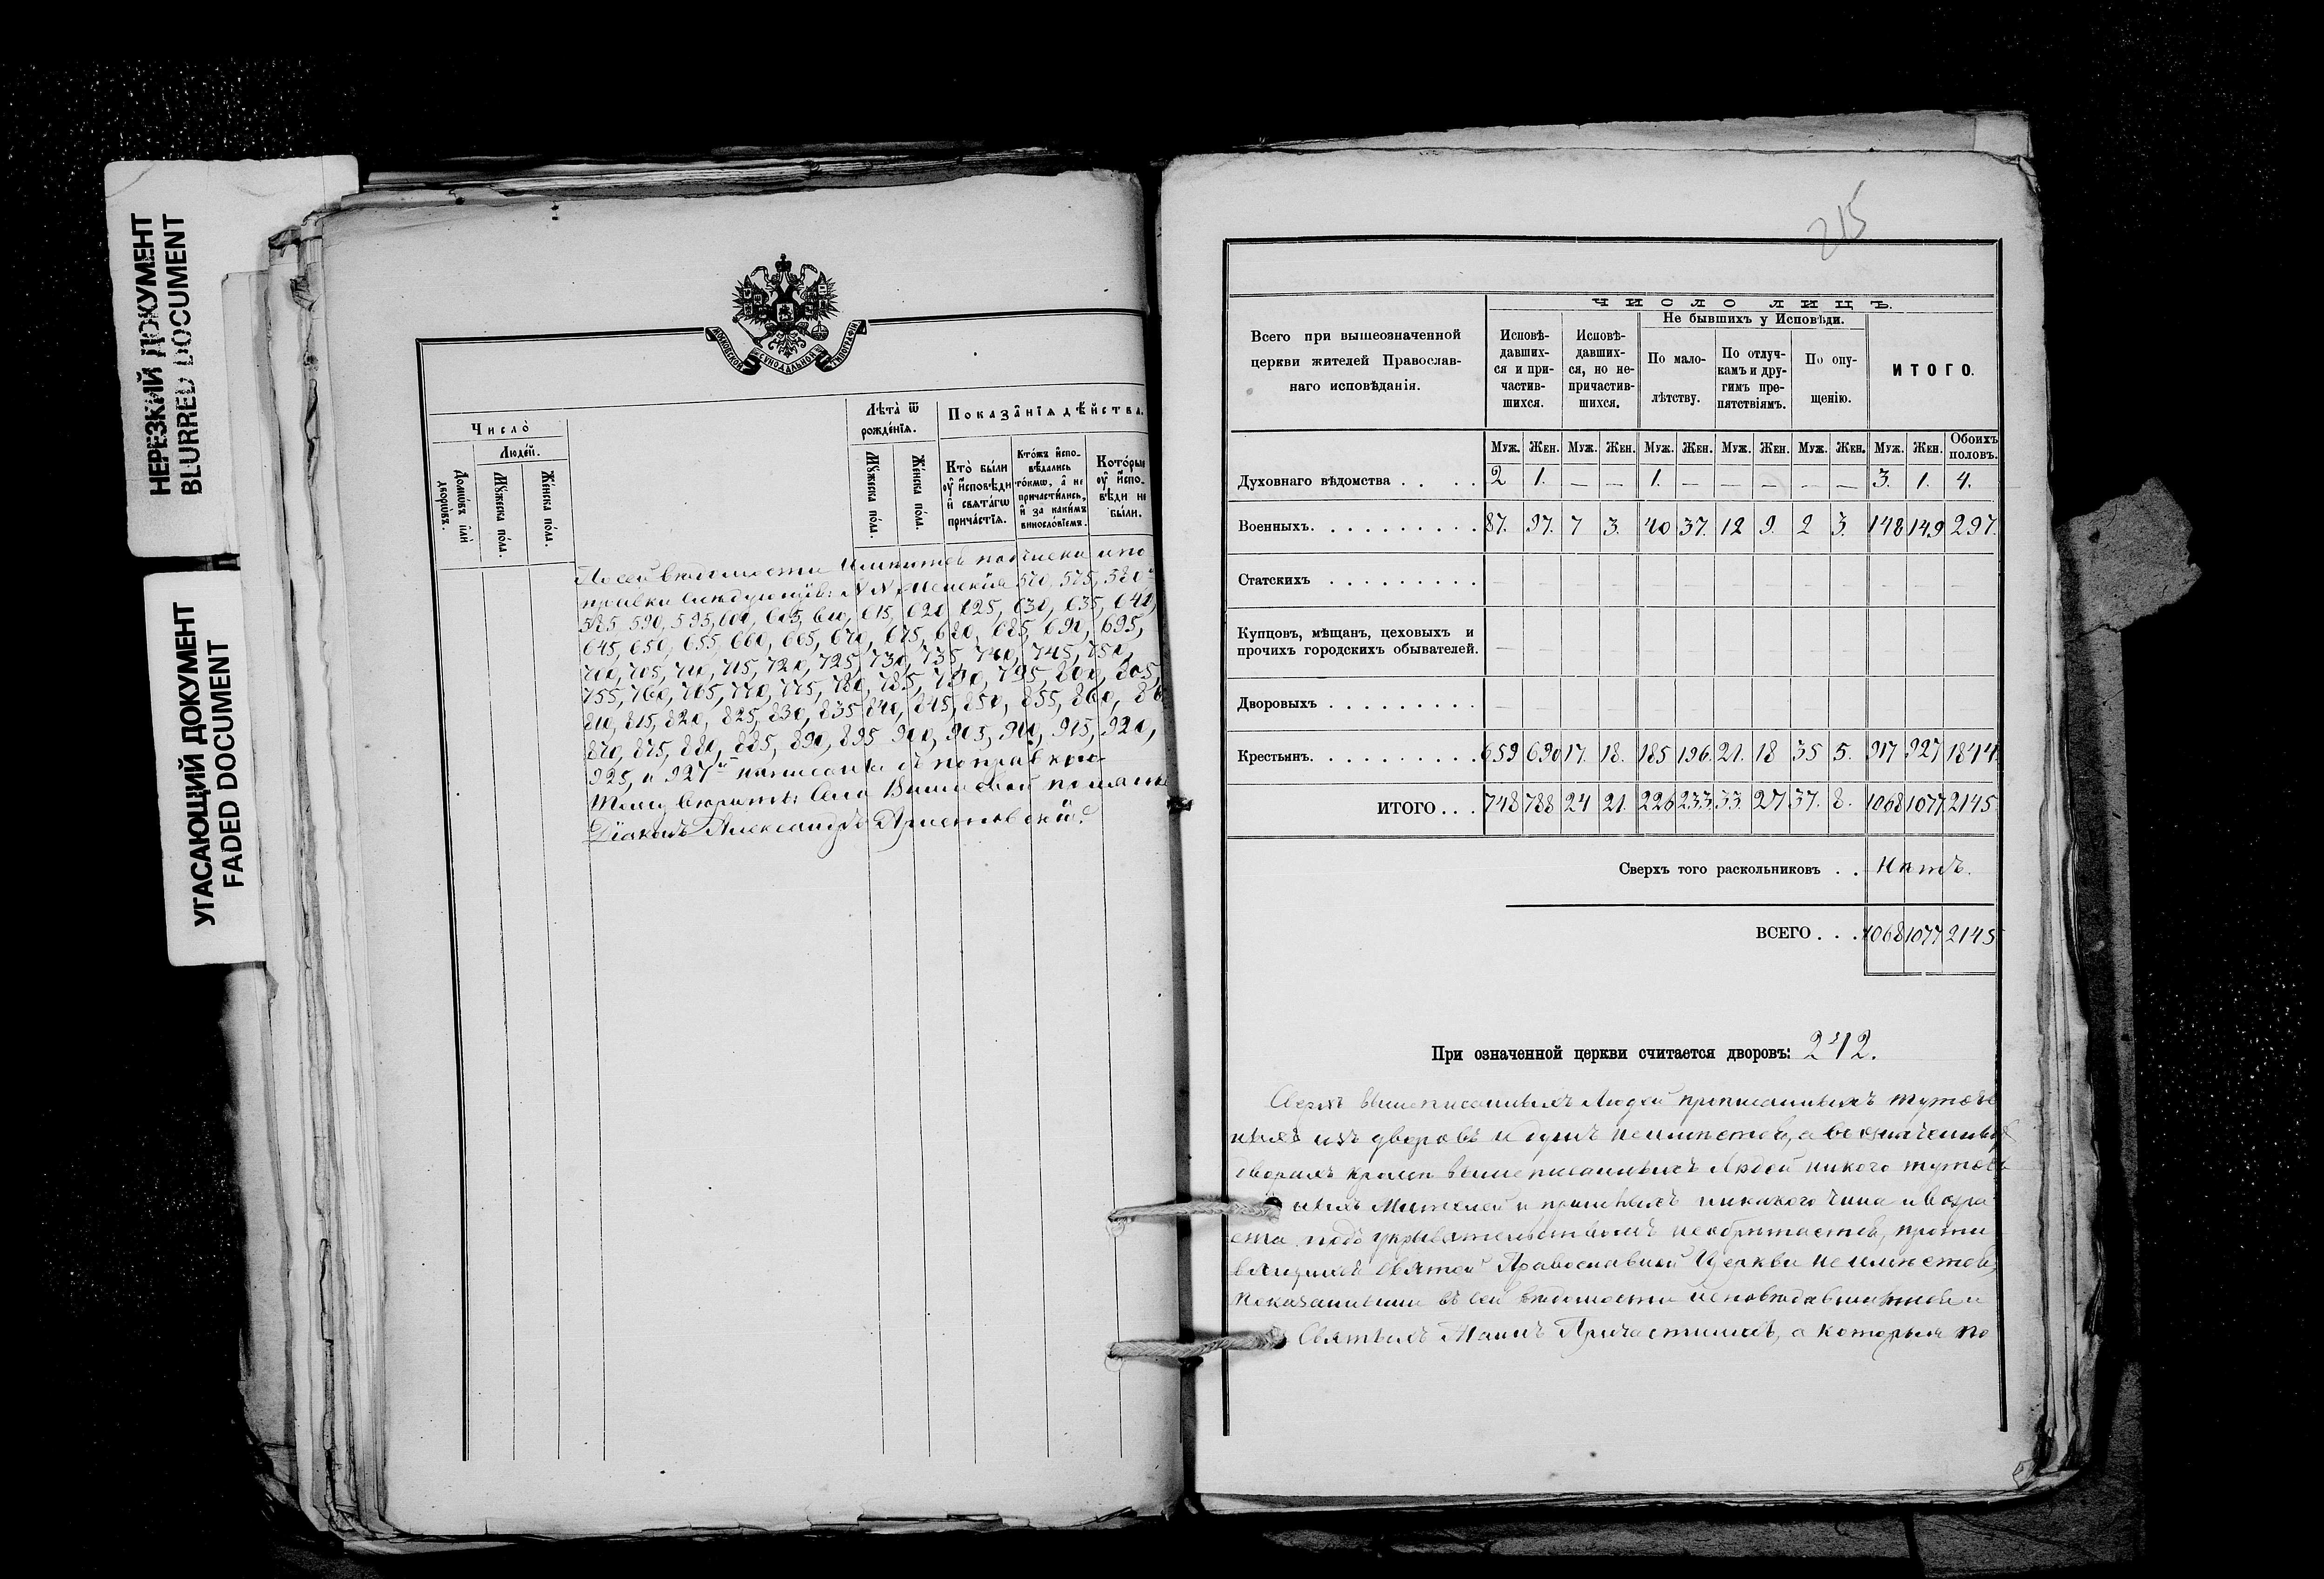 НЕРЕЗКИЙ ДОКУМЕНТ
BLURRED DOCUMENT
УГАСАЮЩИЙ ДОКУМЕНТ
FADED DOCUMENT
МОСКОВСКОЙ СУНОДАЛЬНОЙ ТИПОГРАФІИ
Число̀
Людей.
Домѡвъ и҆лѝ дворѡвъ.
Мꙋжеска по́ла.
Же́нска по́ла.
Лѣта̀ ѿ рожде́нїѧ.
Мꙋжеска по́ла.
Же́нска по́ла.
Показа̑нїѧ дѣ́йства.
Кто̀ бы́ли оу҆ и҆сповѣди и҆ свѧта́гѡ прича́стїѧ.
Кто́жъ и҆сповѣ́дались то́кмѡ, а҆ не причасти́лись, и҆ за каки́мъ винословїемъ.
Кото́рые оу҆ и҆сповѣди не бы́ли.
По сей вѣдомости имѣются подчистки и по
правки слѣдующія: №№ Женскія 570, 575, 580
585, 590, 595, 600, 605, 610, 615, 620, 625, 630, 635, 640,
645, 650, 655, 660, 665, 670, 675, 680, 685, 690, 695,
700, 705, 710, 715, 720, 725, 730, 735, 740, 745, 750,
755, 760, 765, 770, 775, 780, 785, 790, 795, 800, 805,
810, 815, 820, 825, 830, 835, 840, 845, 850, 855, 860,
870, 875, 880, 885, 890, 895, 900, 905, 910, 915, 920,
925, и 927 написаны съ поправкою
Діаконъ Александръ
215
Всего при вышеозначенной церкви жителей Православнаго исповѣданія.
ЧИСЛО ЛИЦЪ.
Исповѣдавшихся и причастившихся.
Исповѣдавшихся, но непричастившихся.
Не бывшихъ у Исповѣди.
По малолѣтству.
По отлучкамъ и другимъ препятствіямъ.
По опущенію.
ИТОГО.
Муж. Жен. Муж. Жен. Муж. Жен. Муж. Жен. Муж. Жен. Муж. Жен. Обоихъ половъ.
Духовнаго вѣдомства . . . . 2 1. — — 1. — — — — — 3. 1. 4.
Военныхъ. . . . . . . . . . 87. 97. 7 3. 40 37. 12 9. 2 3. 148 149 297.
Статскихъ . . . . . . . . . — — — — — — — — — — — — —
Купцовъ, мѣщанъ, цеховыхъ и
прочихъ городскихъ обывателей. — — — — — — — — — — — — —
Дворовыхъ . . . . . . . . . — — — — — — — — — — — — —
Крестьянъ. . . . . . . . . . 659 690 17. 18. 185 196. 21. 18 35 5. 917 927 1844.
ИТОГО . . . 748 788 24 21. 226 233. 33. 27 37. 8. 1068 1077 2145.
Сверхъ того раскольниковъ . . Нѣтъ.
ВСЕГО . . . 1068 1077 2145
При означенной церкви считается дворовъ: 242.
Сверхъ вышеписанныхъ людей приписанныхъ тутош
нихъ изъ дворовъ и душъ неимѣется, а во означенныхъ
дворахъ кромѣ вышеписанныхъ людей никого тутош
нихъ жителей и пришлыхъ никакого чина и возра
ста подъ укрывательствомъ необрѣтается, проти
вящихся Святой Православной Церкви неимѣется,
показанныи въ сей вѣдомости исповѣдавшимися и
Святыхъ Таинъ Причастились, а которыя по